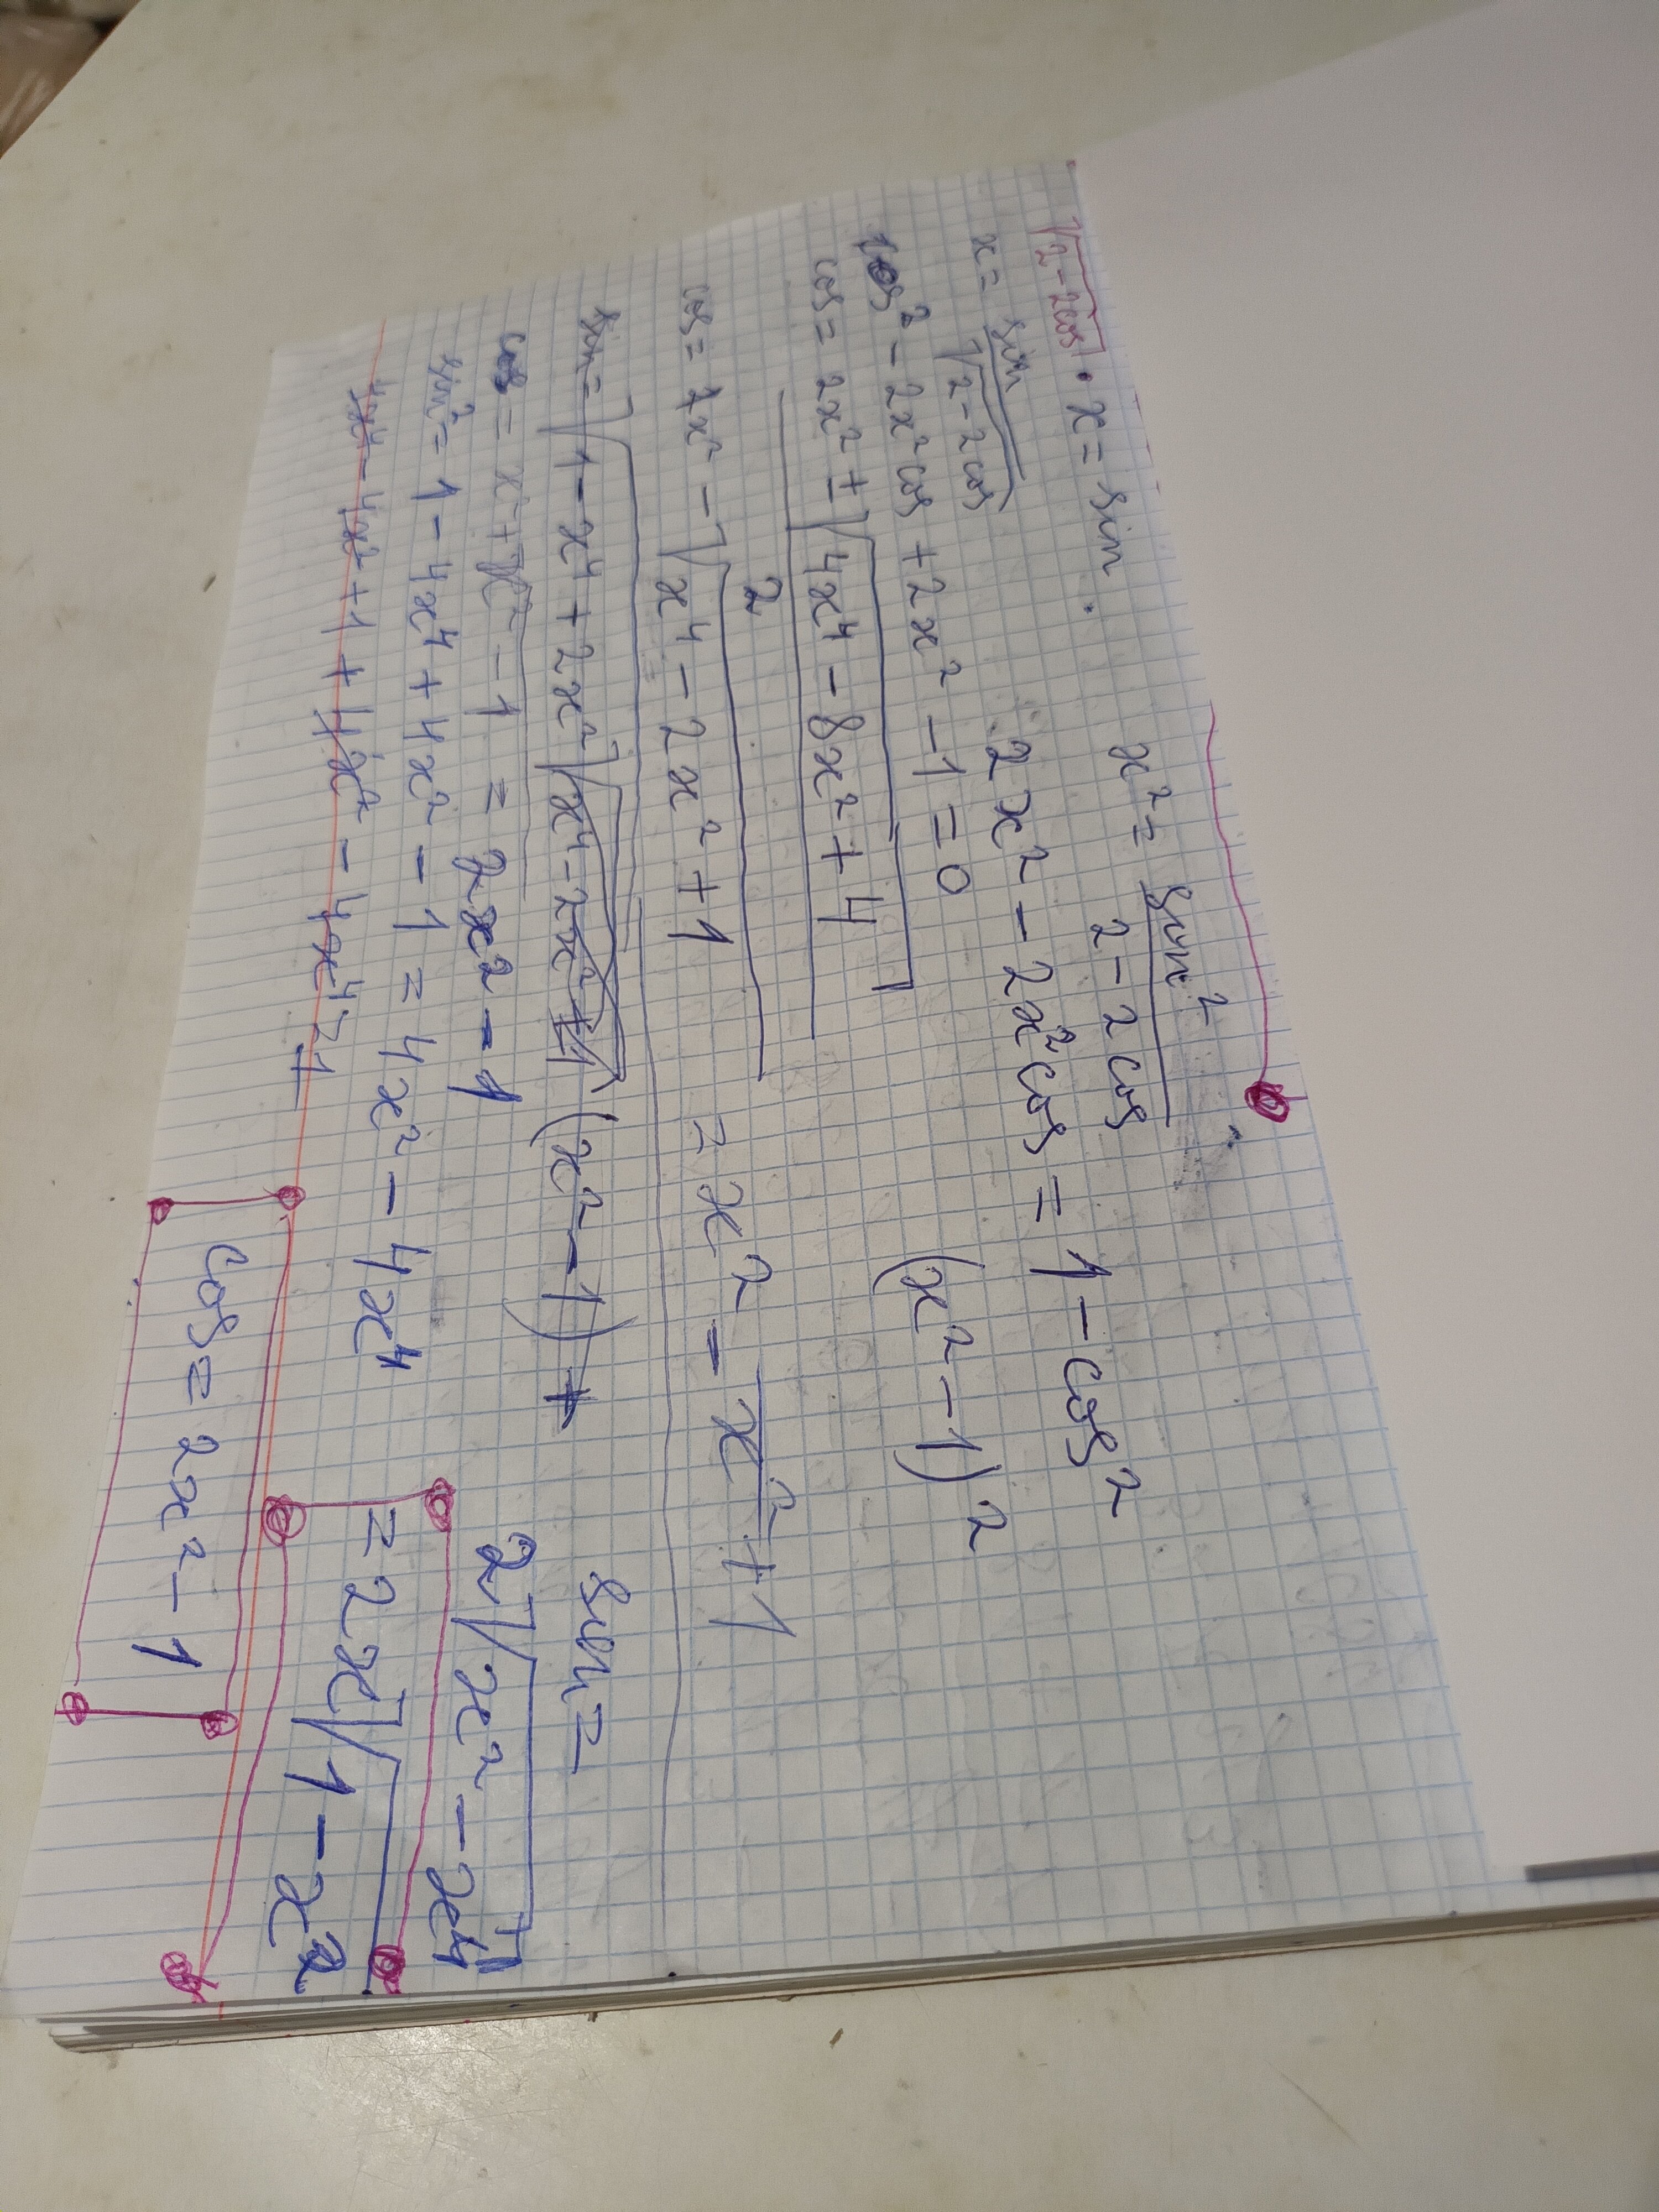 √2-2cos · x = sin
x² = sin² / 2-2cos
x = sin / √2-2cos
2x² - 2x²cos = 1 - cos²
cos² - 2x²cos + 2x² - 1 = 0
(x² - 1)²
cos = 2x² ± √4x⁴ - 8x² + 4
2
cos = x² - √x⁴ - 2x² + 1 = x² - x² + 1
sin = √1 - x⁴ + 2x² √x⁴ - 2x² + 1 (x² - 1) +
sin =
cos = x² + x² - 1 = 2x² - 1
2√x² - x⁴
sin² = 1 - 4x⁴ + 4x² - 1 = 4x² - 4x⁴
= 2x√1 - x²
4x⁴ - 4x² + 1 + 4x² - 4x⁴ = 1
cos = 2x² - 1